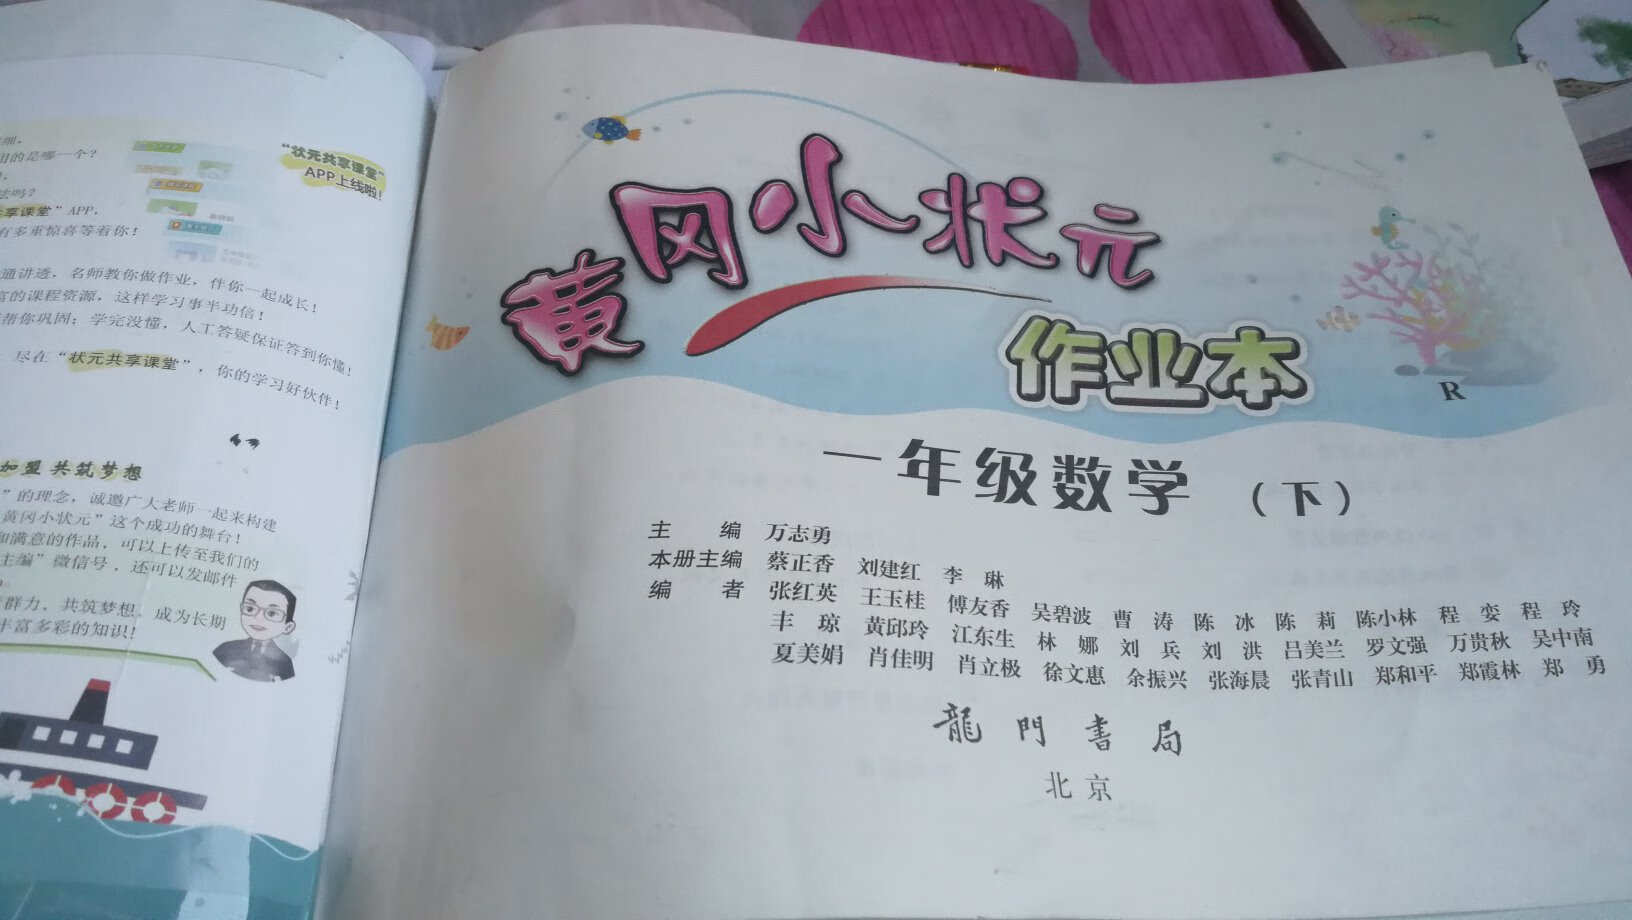 用的是哪一个？
“状元共享课堂”
APP上线啦！
法吗？
享课堂”APP，
有多重惊喜等着你！
通讲透，名师教你做作业，伴你一起成长！
富的课程资源，这样学习事半功倍！
帮你巩固；学完没懂，人工答疑保证答到你懂！
尽在“状元共享课堂”，你的学习好伙伴！
加盟 共筑梦想
”的理念，诚邀广大老师一起来构建
黄冈小状元”这个成功的舞台！
和满意的作品，可以上传至我们的
主编”微信号，还可以发邮件
群力，共筑梦想，成为长期
丰富多彩的知识！
黄冈小状元
作业本
R
一年级数学（下）
主 编 万志勇
本册主编 蔡正香 刘建红 李 琳
编 者 张红英 王玉桂 傅友香 吴碧波 曹 涛 陈 冰 陈 莉 陈小林 程 娈 程 玲
丰 琼 黄邱玲 江东生 林 娜 刘 兵 刘 洪 吕美兰 罗文强 万贵秋 吴中南
夏美娟 肖佳明 肖立极 徐文惠 余振兴 张海晨 张青山 郑和平 郑霞林 郑 勇
龍門書局
北京